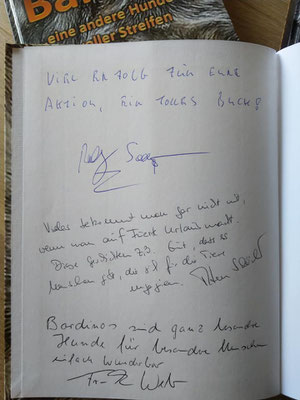 Ba
eine andere Hunde
aller Streifen
VIEL ERFOLG FÜR EURE
AKTION, EIN TOLLES BUCH!
Vieles bekommt man gar nicht mit,
wenn man auf Insel Urlaub macht.
Diese Geschichten z.B. Gut, dass es
Menschen gibt, die sich für die Tiere
engagieren.
Bardinos sind ganz besondere
Hunde für besondere Menschen
einfach wunderbar